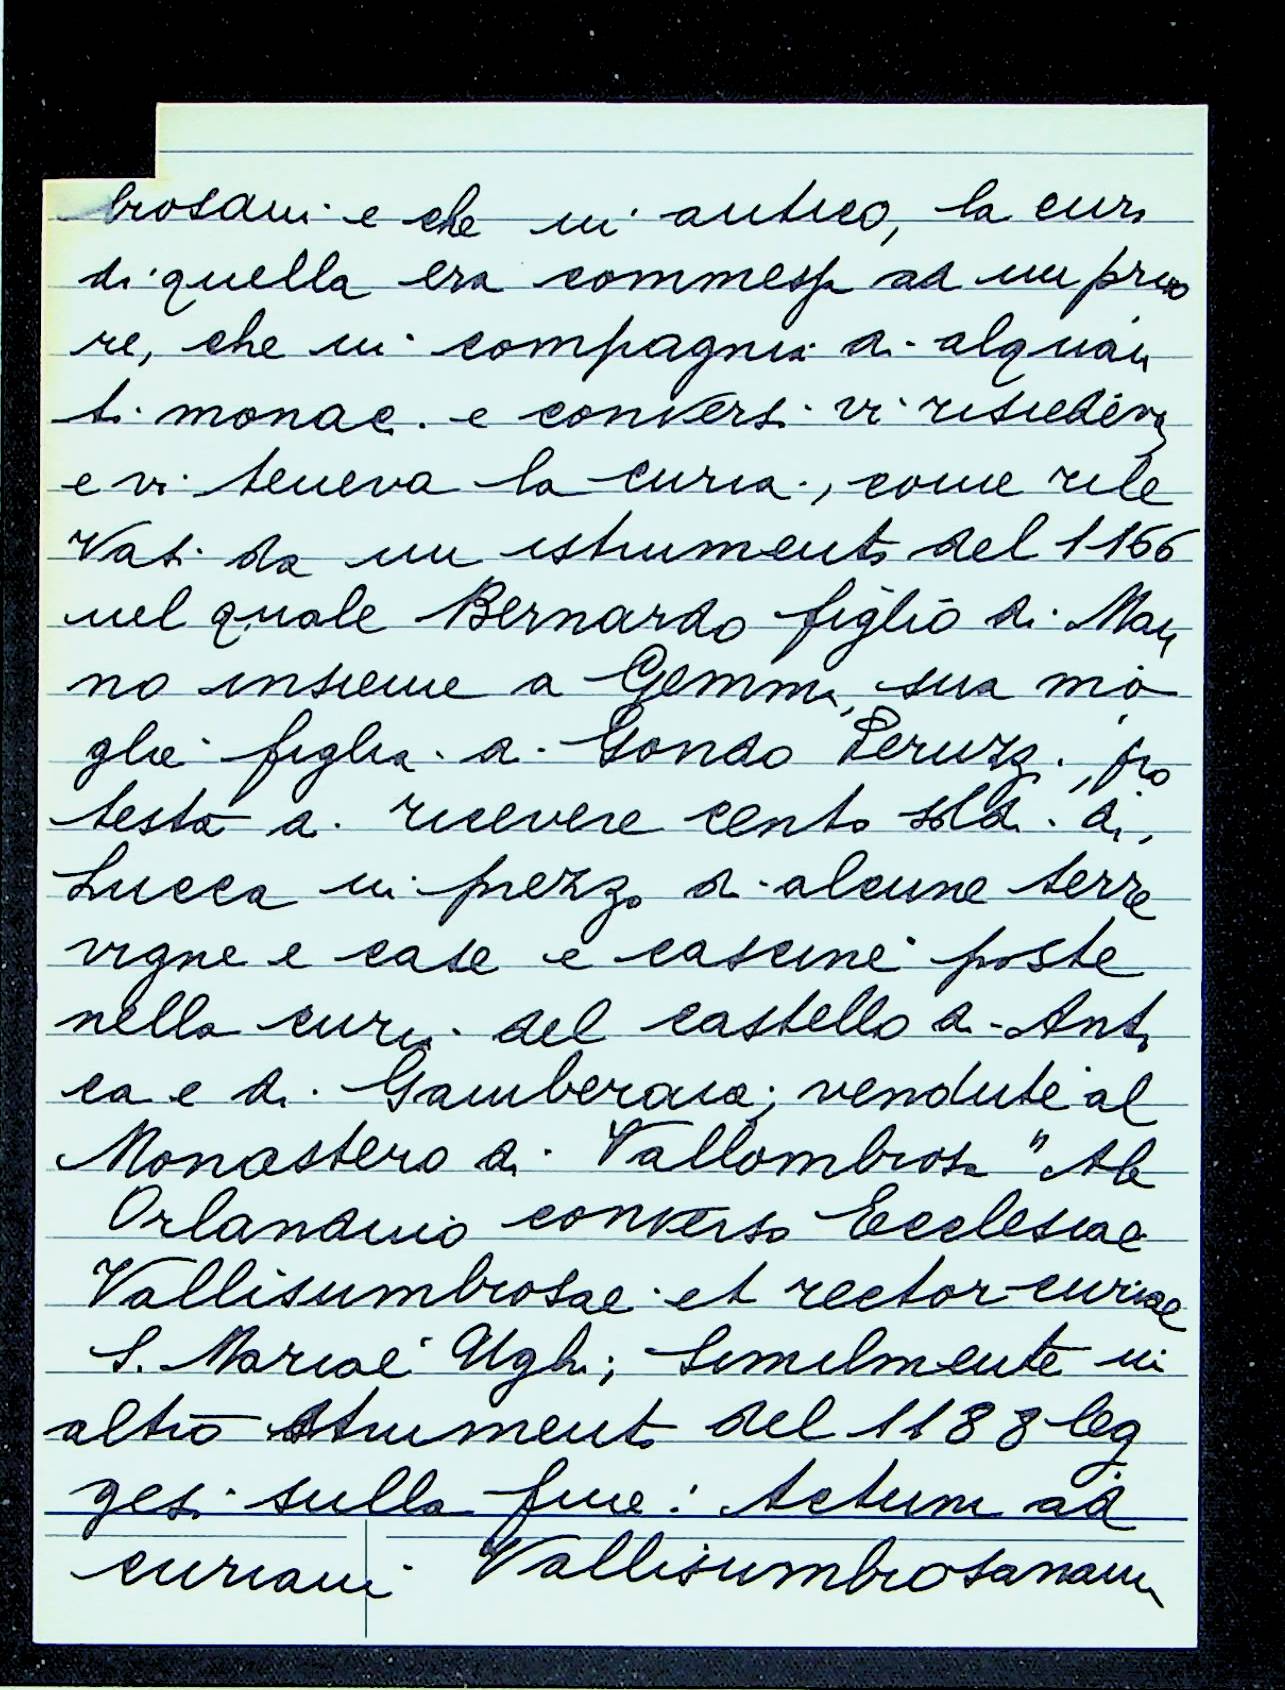 brosani e che in antico, la cura
di quella era commessa ad un prio
re, che in compagnia di alquan
ti monaci e conversi vi risiedeva
e vi teneva la curia, come rile
vasi da un istrumento del 1166
nel quale Bernardo figlio di Man
no insieme a Gemma, sua mo
glie figlia di Gondo Peruzzi, pro
testa di ricevere cento soldi di,
Lucca in prezzo di alcune terre
vigne e case e cascine poste
nella curia del castello di Anti
ca e di Gamberaia; vendute al
Monastero di Vallombrosa "Ab
Orlandino converso Ecclesiae
Vallisumbrosae et rector curiae
S. Mariae Ughi; Similmente in
altro strumento del 1188 leg
gesi sulla fine: Actum ad
curiam Vallisumbrosanam